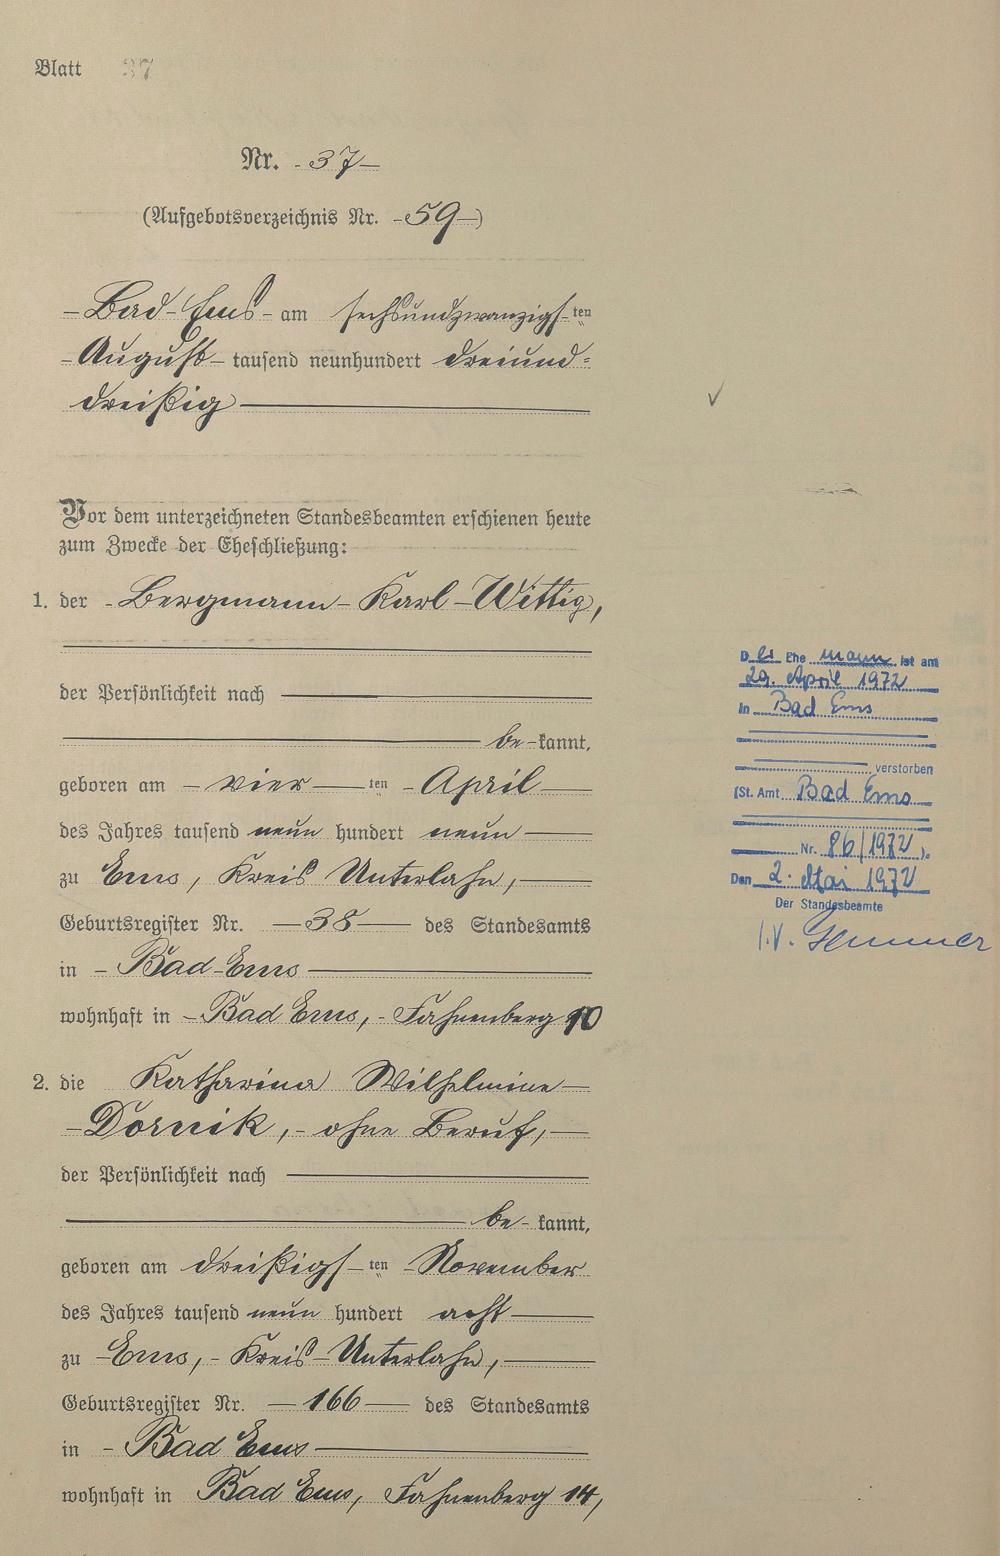 Blatt 37
Nr. - 37 -
(Aufgebotsverzeichnis Nr. - 59 - )
- Bad - Ems - am sechsundzwanzigs - ten
- August - tausend neunhundert dreiund=
dreißig
Vor dem unterzeichneten Standesbeamten erschienen heute
zum Zwecke der Eheschließung:
1. der - Bergmann - Karl - Wittig,
der Persönlichkeit nach
be - kannt,
geboren am - vier - ten - April -
des Jahres tausend neun hundert neun -
zu Ems, Kreis Unterlahn, -
Geburtsregister Nr. - 38 - des Standesamts
in - Bad - Ems
wohnhaft in - Bad Ems, - Fahnenberg 10
2. die Katharina Wilhelmine -
- Dornik, - ohne Beruf, -
der Persönlichkeit nach
be - kannt,
geboren am dreißigs - ten - November
des Jahres tausend neun hundert acht -
zu - Ems, - Kreis - Unterlahn, -
Geburtsregister Nr. - 166 - des Standesamts
in - Bad Ems
wohnhaft in Bad Ems, Fahnenberg 14,
Der Ehe mann ist am
29. April 1972
in Bad Ems
verstorben
(St. Amt Bad Ems
Nr. 86/1972).
Den 2. Mai 1972
Der Standesbeamte
I.V.